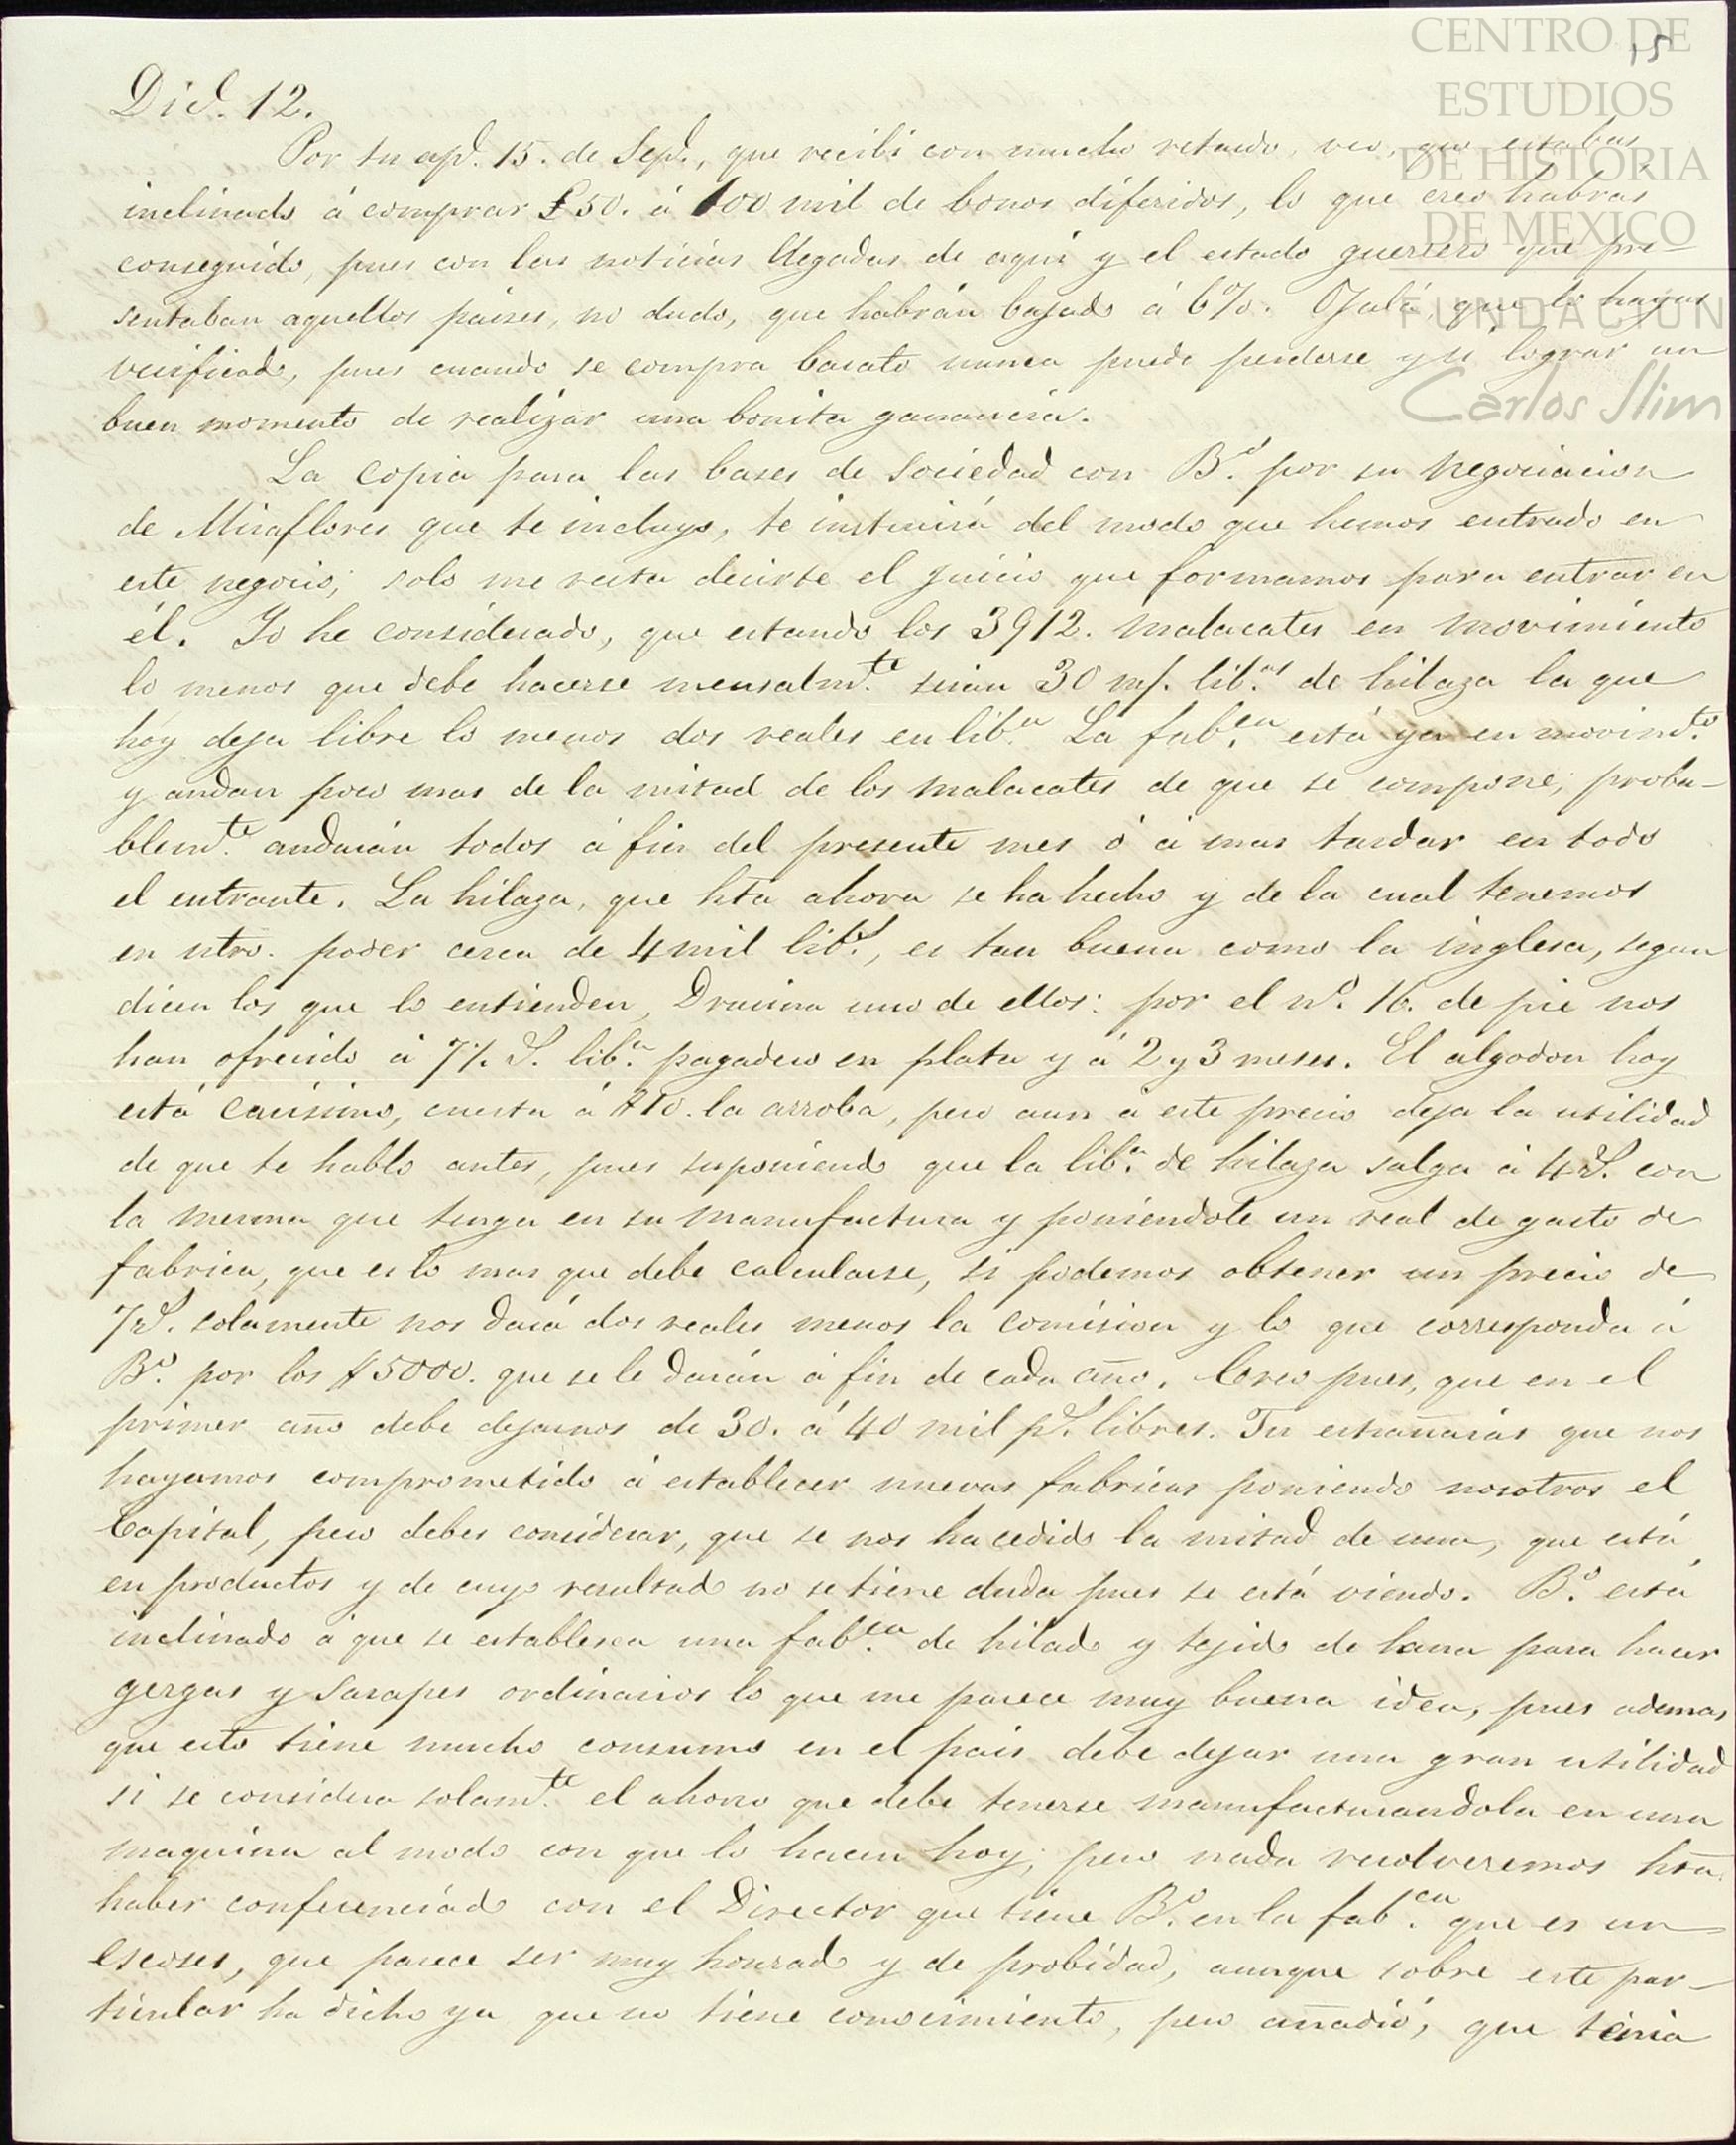 CENTRO DE
ESTUDIOS
DE HISTORIA
DE MEXICO
FUNDACION
Carlos Slim
15
Dic.e 12.
Por tu ap.da 15. de Sep.e, que recibi con mucho retardo, veo, que estabas
inclinado á comprar £50. á 100 mil de bonos diferidos, lo que creo habras
conseguido, pues con las noticias llegadas de aqui y el estado guerrero que pre-
sentaban aquellos paises, no dudo, que habrán bajado á 6%. Ojalá, que lo hayas
verificado, pues cuando se compra barato nunca puede perderse y si lograr un
buen momento de realizar una bonita ganancia.
La copia para las bases de Sociedad con B.d por su negociacion
de Miraflores que te incluyo, te instruirá del modo que hemos entrado en
este negocio; solo me resta decirte el juicio que formamos para entrar en
él. Yo he considerado, que estando los 3912. malacates en movimiento
lo menos que debe hacerse mensalm.te serian 30 m/. lib.as de hilaza la que
hoy deja libre lo menos dos reales en lib.a La fab.ca está ya en movim.to
y andan poco mas de la mitad de los malacates de que se compone; proba-
blem.te andarán todos á fin del presente mes ó á mas tardar en todo
el entrante. La hilaza, que hta ahora se ha hecho y de la cual tenemos
en ntro. poder cerca de 4 mil lib.s, es tan buena como la inglesa, segun
dicen los que lo entienden, Drusina uno de ellos: por el n.o 16. de pie nos
han ofrecido á 7½ r.s lib.a pagadero en plata y á 2 y 3 meses. El algodon hoy
está carisimo, cuesta á $10. la arroba, pero aun á este precio deja la utilidad
de que te hablo antes, pues suponiendo que la lib.a de hilaza salga á 4 r.s con
la merma que tenga en su manufactura y poniendole un real de gasto de
fabrica, que es lo mas que debe calcularse, si podemos obtener un precio de
7 r.s solamente nos dará dos reales menos la comision y lo que corresponda á
B.d por los $5000. que se le darán á fin de cada año. Creo pues, que en el
primer año debe dejarnos de 30. á 40 mil p.s libres. Tu estrañarás que nos
hayamos comprometido á establecer nuevas fabricas poniendo nosotros el
Capital, pero debes considerar, que se nos ha cedido la mitad de una, que está
en productos y de cuyo resultado no se tiene duda pues se está viendo. B.d está
inclinado á que se establesca una fab.ca de hilado y tejido de lana para hacer
gergas y sarapes ordinarios lo que me parece muy buena idea, pues ademas
que esto tiene mucho consumo en el pais debe dejar una gran utilidad
si se considera solam.te el ahorro que debe tenerse manufacturandola en una
maquina al modo con que lo hacen hoy; pero nada resolveremos hta
haber conferenciado con el Director que tiene B.d en la fab.ca que es un
escoses, que parece ser muy honrado y de probidad, aunque sobre este par-
ticular ha dicho ya que no tiene conocimiento, pero añadió, que tenia